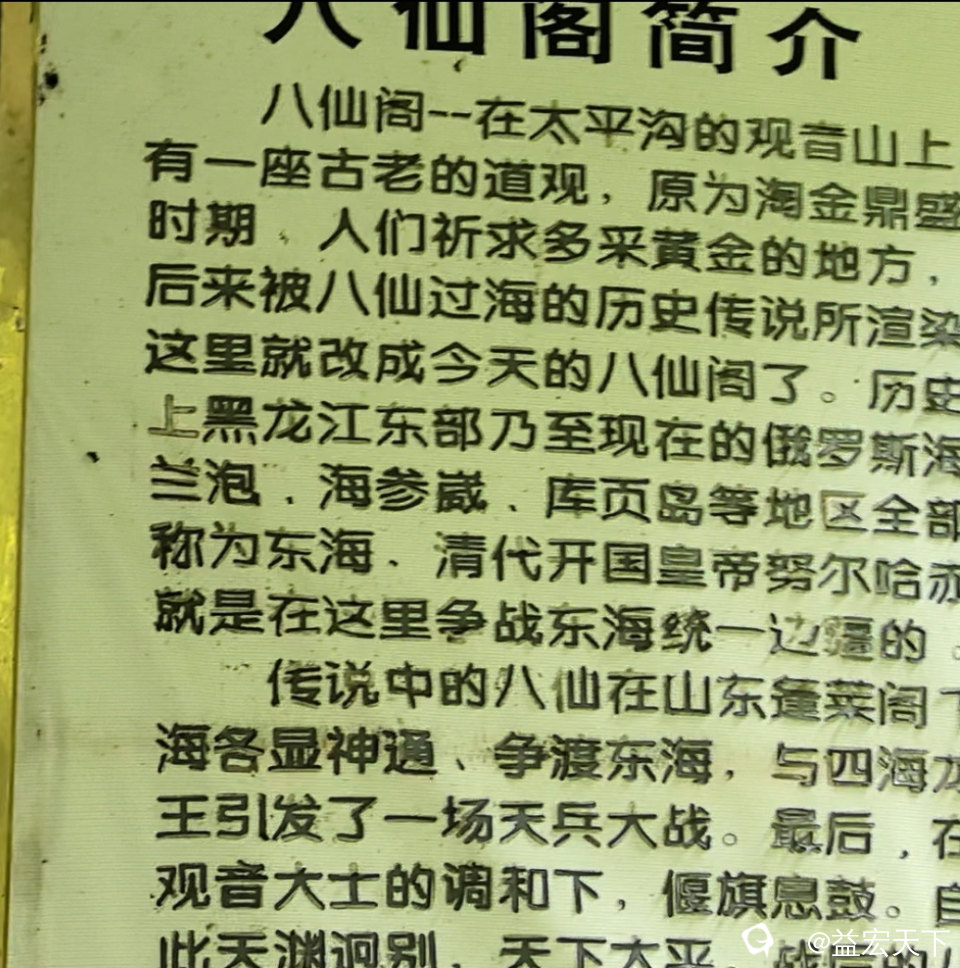 八仙阁简介
八仙阁--在太平沟的观音山上
有一座古老的道观，原为淘金鼎盛
时期、人们祈求多采黄金的地方，
后来被八仙过海的历史传说所渲染
这里就改成今天的八仙阁了。历史
上黑龙江东部乃至现在的俄罗斯海
兰泡、海参崴、库页岛等地区全部
称为东海、清代开国皇帝努尔哈赤
就是在这里争战东海统一边疆的。
传说中的八仙在山东蓬莱阁下
海各显神通、争渡东海，与四海龙
王引发了一场天兵大战。最后，在
观音大士的调和下，偃旗息鼓。自
此天渊迥别，天下太平。战后的八
@益宏天下